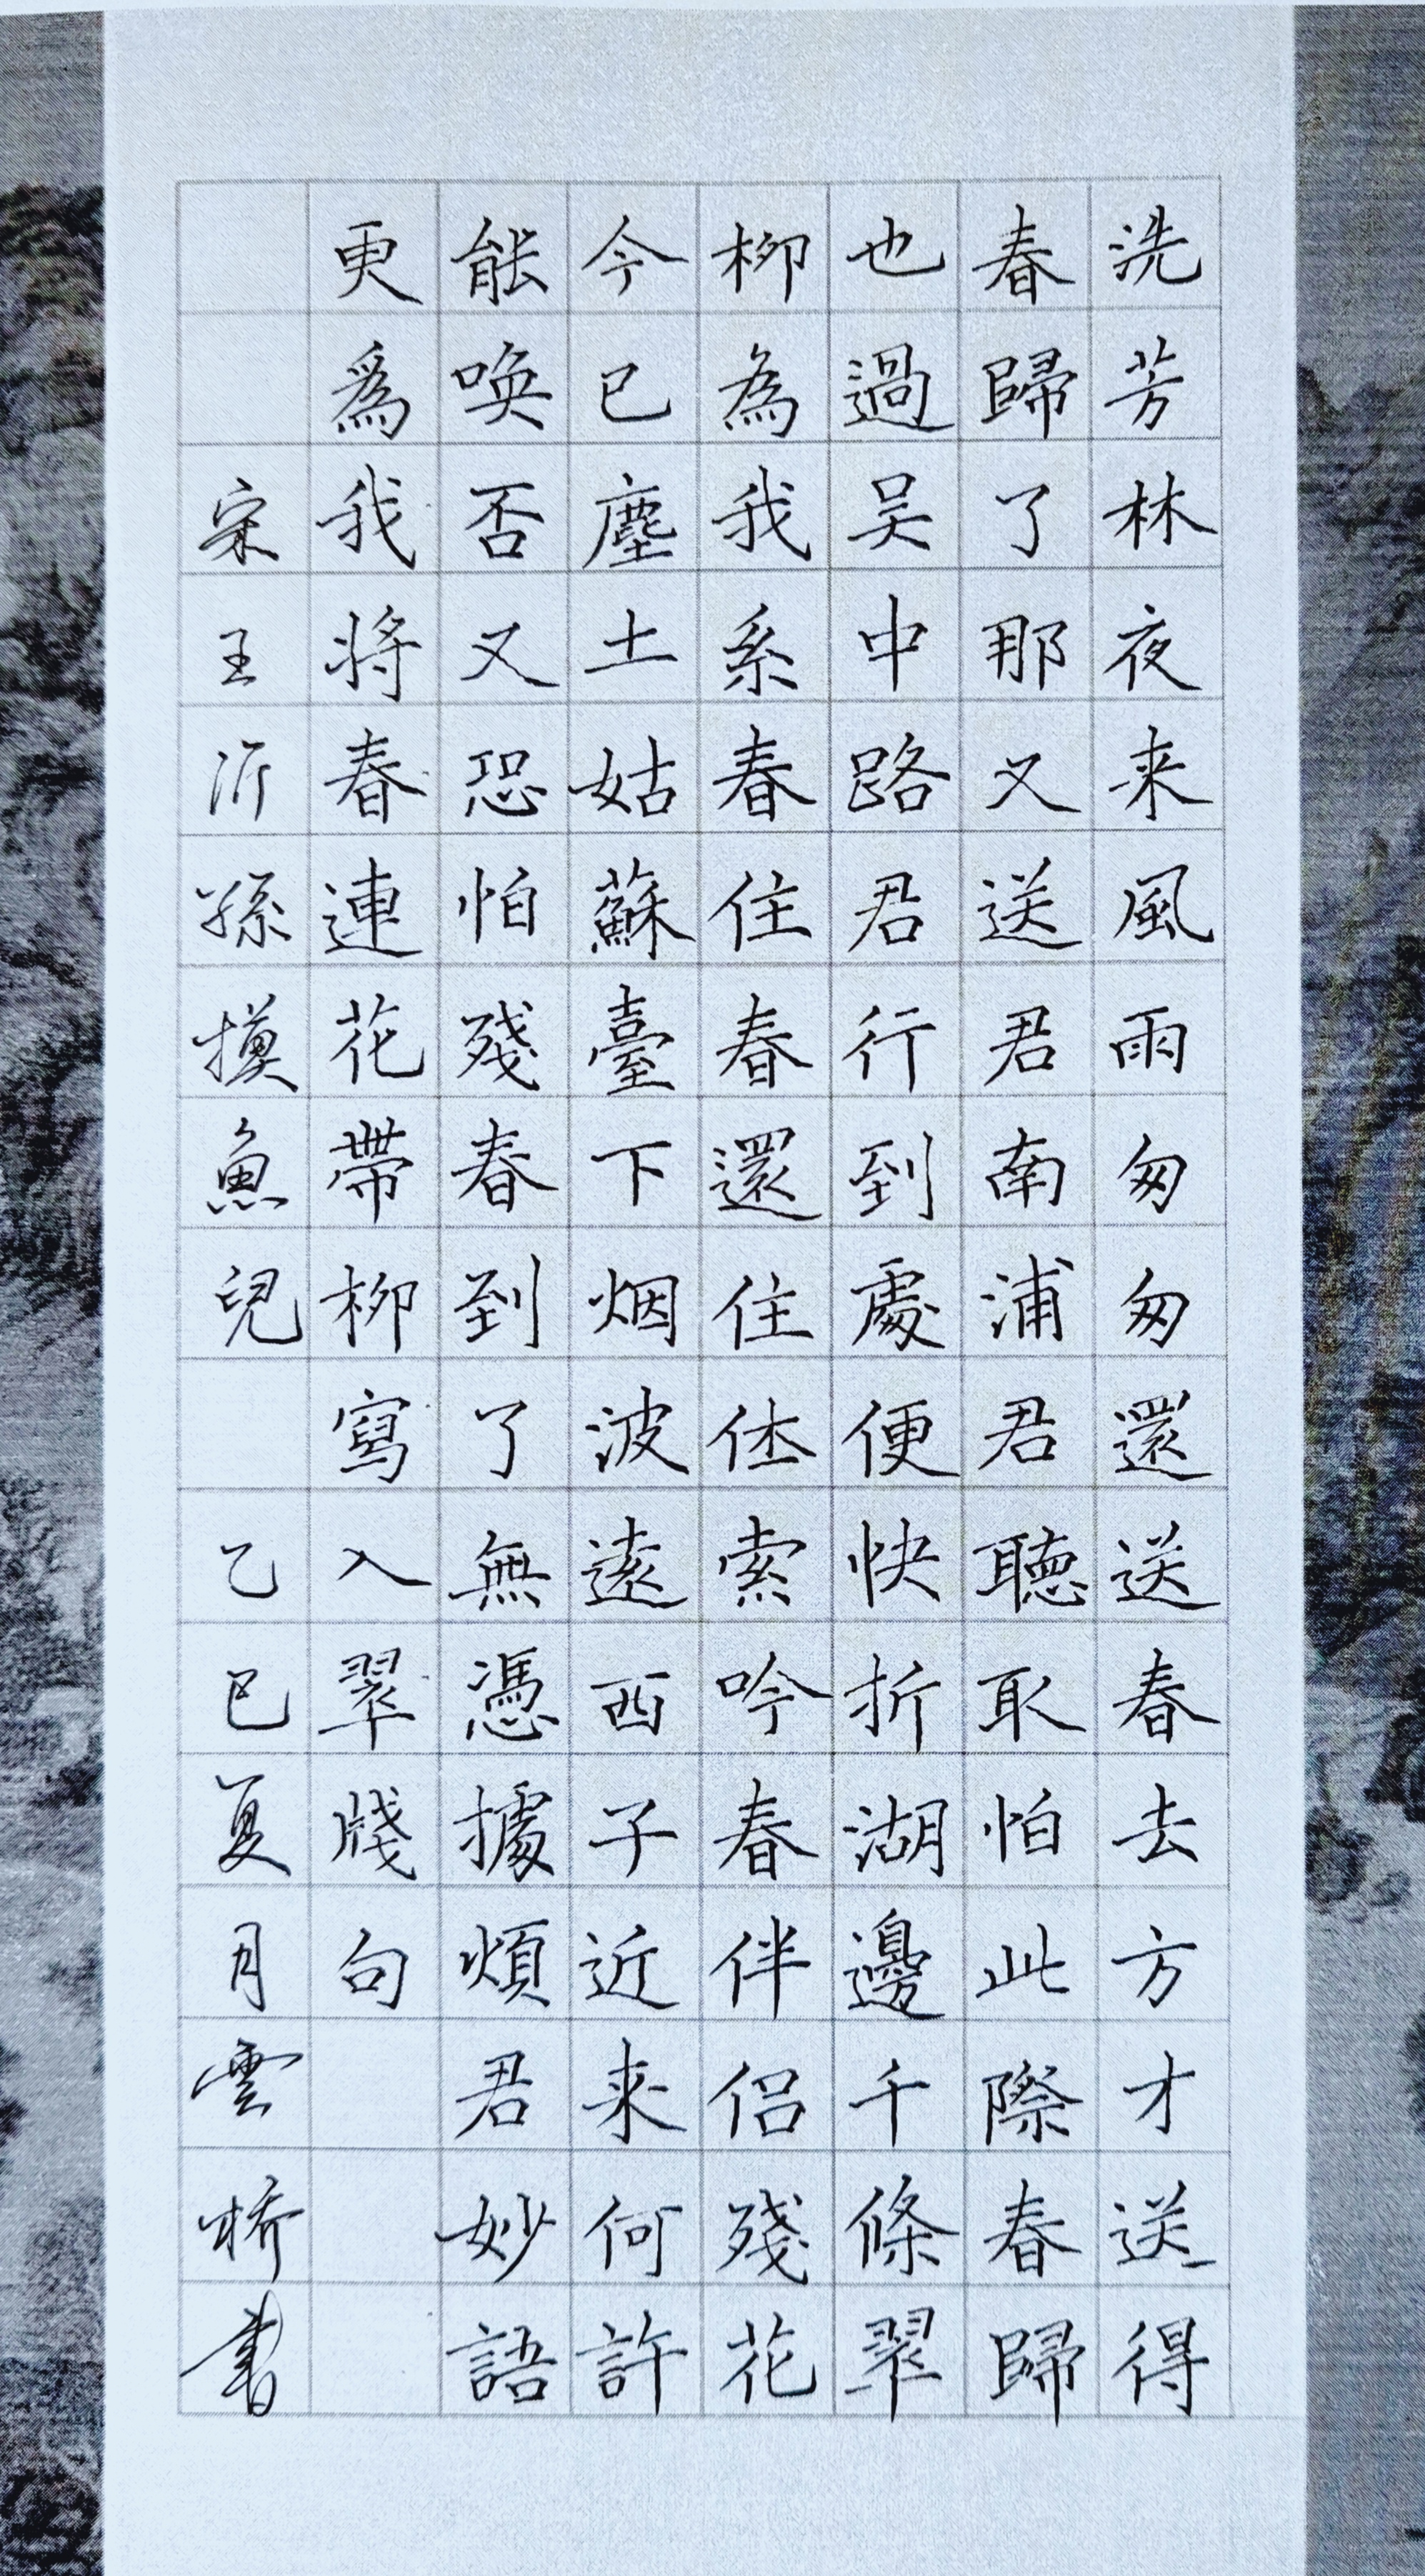 洗芳林夜来風雨匆匆還送春去方才送得
春歸了那又送君南浦君聽取怕此際春歸
也過吴中路君行到處便快折湖邊千條翠
柳為我系春住春還住休索吟春伴侣殘花
今已塵土姑蘇臺下烟波遠西子近来何許
能唤否又恐怕殘春到了無憑據煩君妙語
更爲我將春連花帶柳寫入翠牋句
宋王沂孫摸魚兒 乙巳夏月雲橋書